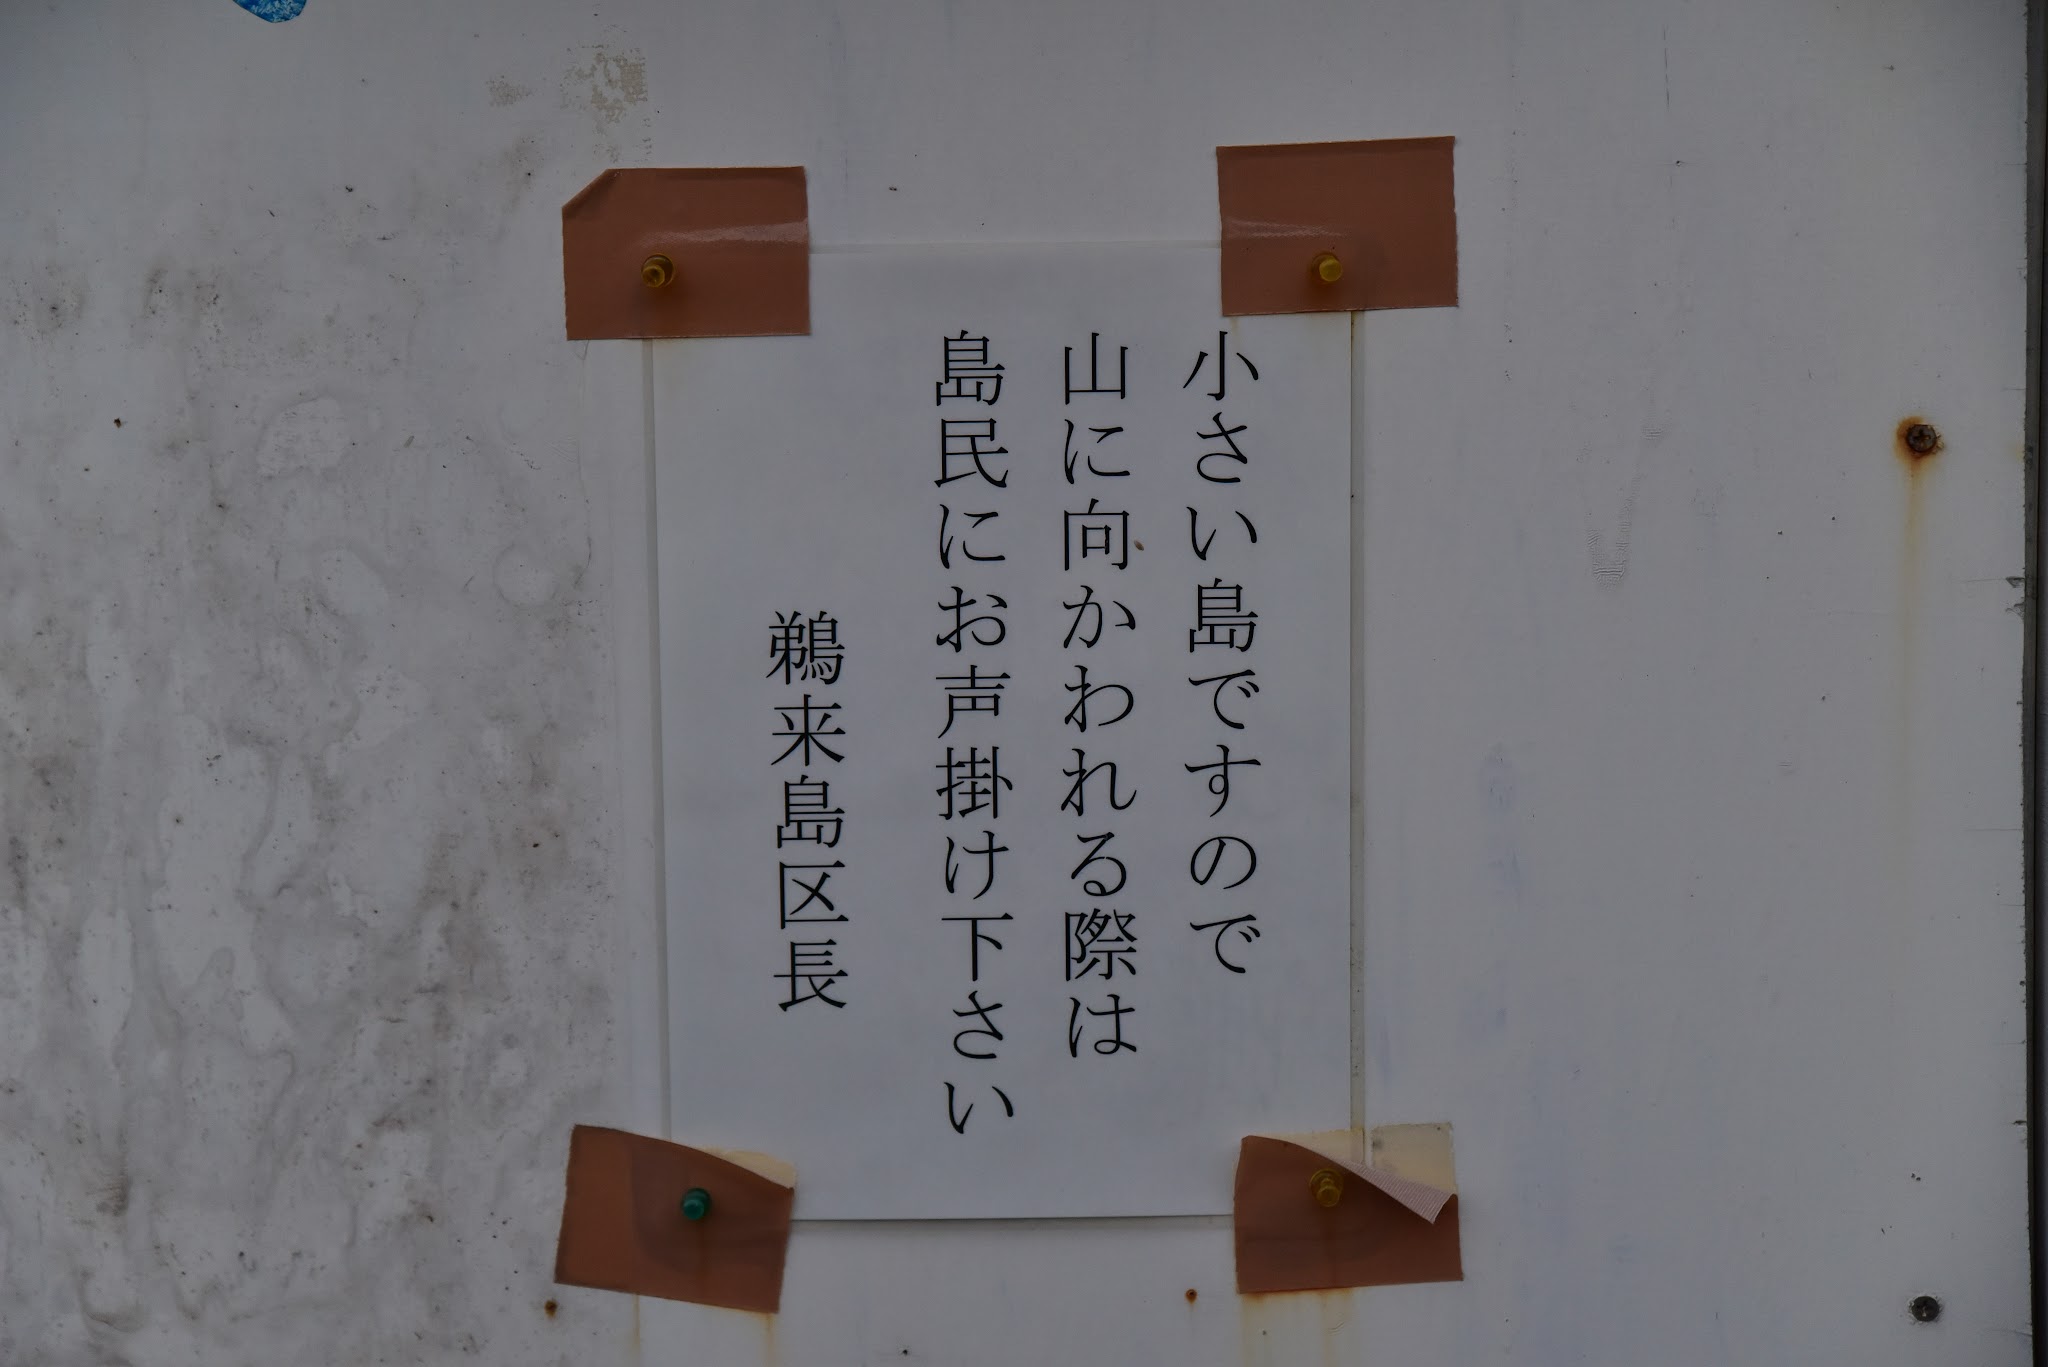 小さい島ですので
山に向かわれる際は
島民にお声掛け下さい
鵜来島区長